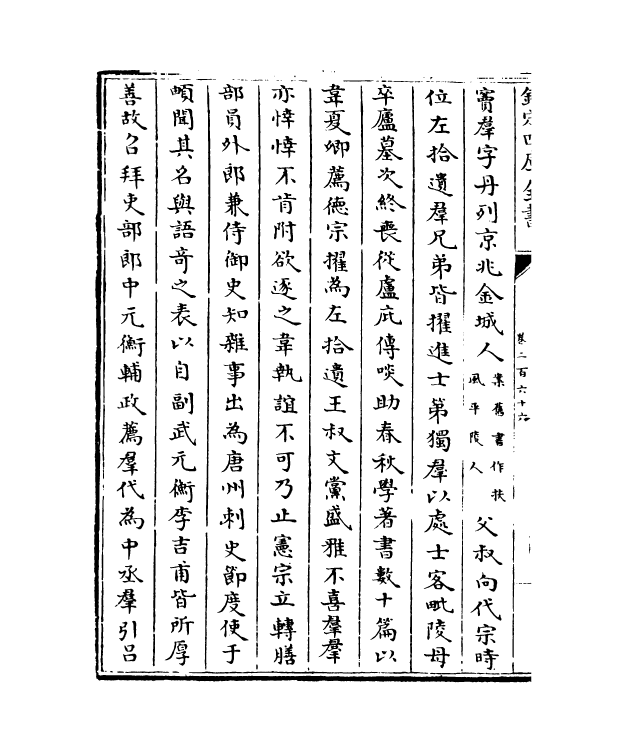 欽定四庫全書
卷二百六十六
竇羣字丹列京兆金城人案舊書作扶風平陵人父叔向代宗時
位左拾遺羣兄弟皆擢進士第獨羣以處士客毗陵母
卒廬墓次終喪從盧庇傳啖助春秋學著書數十篇以
韋夏卿薦德宗擢為左拾遺王叔文黨盛雅不喜羣羣
亦悻悻不肯附欲逐之韋執誼不可乃止憲宗立轉膳
部員外郎兼侍御史知雜事出為唐州刺史節度使于
頔聞其名與語竒之表以自副武元衡李吉甫皆所厚
善故召拜吏部郎中元衡輔政薦羣代為中丞羣引吕